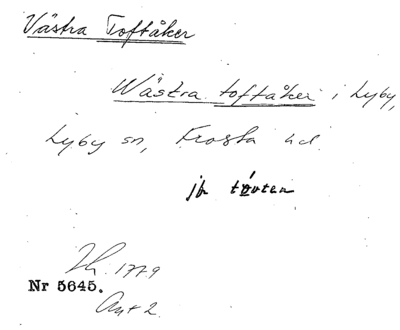 Västra Toftåker
Wästra toftåker i Lyby,
Lyby sn, Frosta hd.
jfr
1779
Nr 5645.